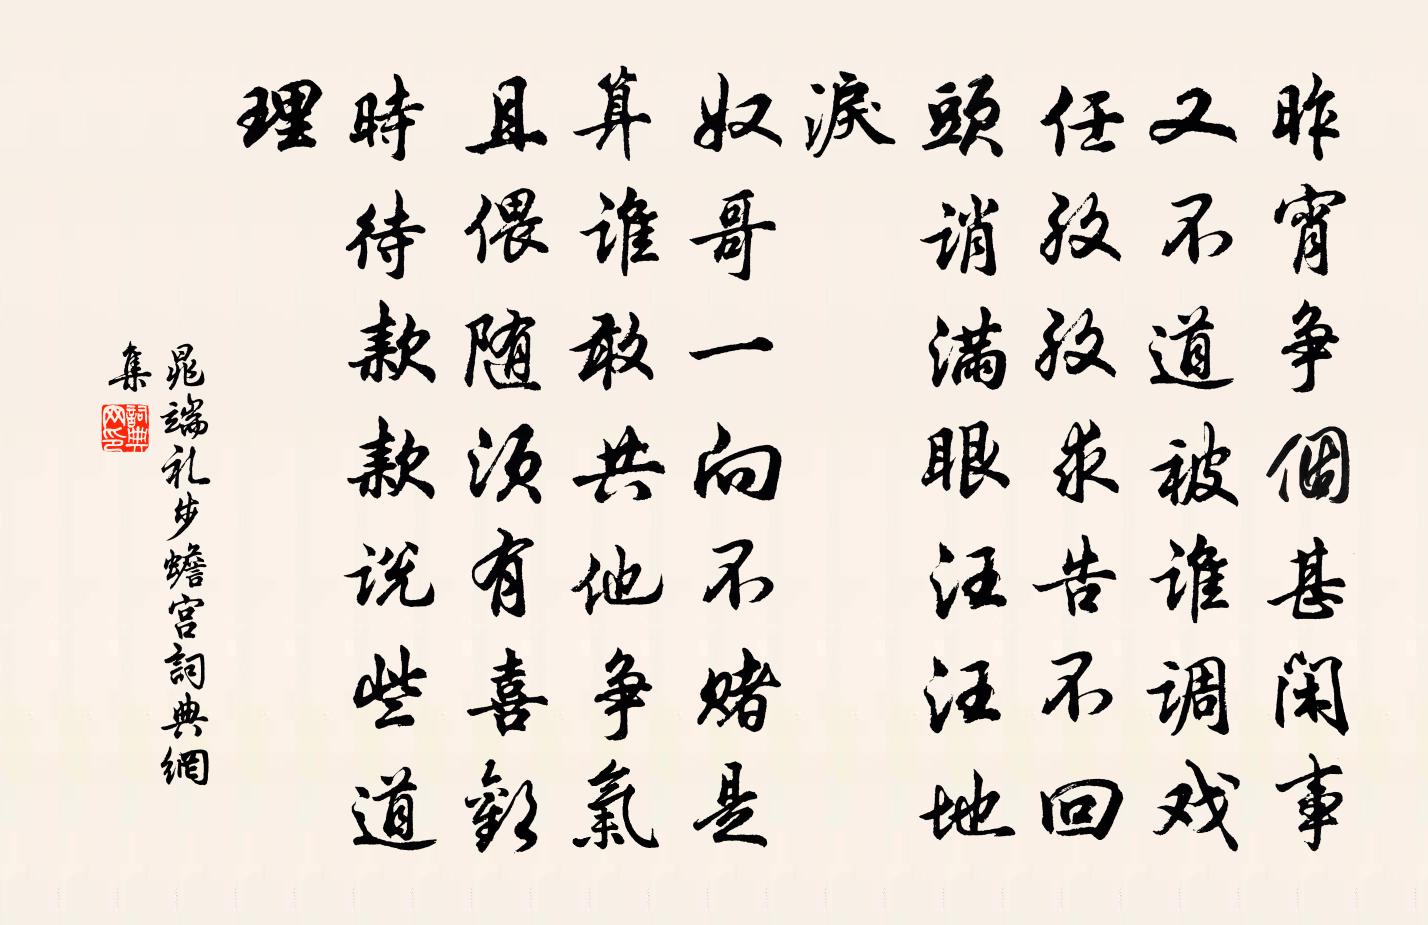 昨宵争個甚閑事
又不道被谁调戏
任孜孜求告不回
頭诮满眼汪汪地
淚
奴哥一向不赌是
算谁敢共他争氣
且偎随须有喜歡
時待款款说些道
理
晁端礼步蟾宫詞典網
集
詞典
网印